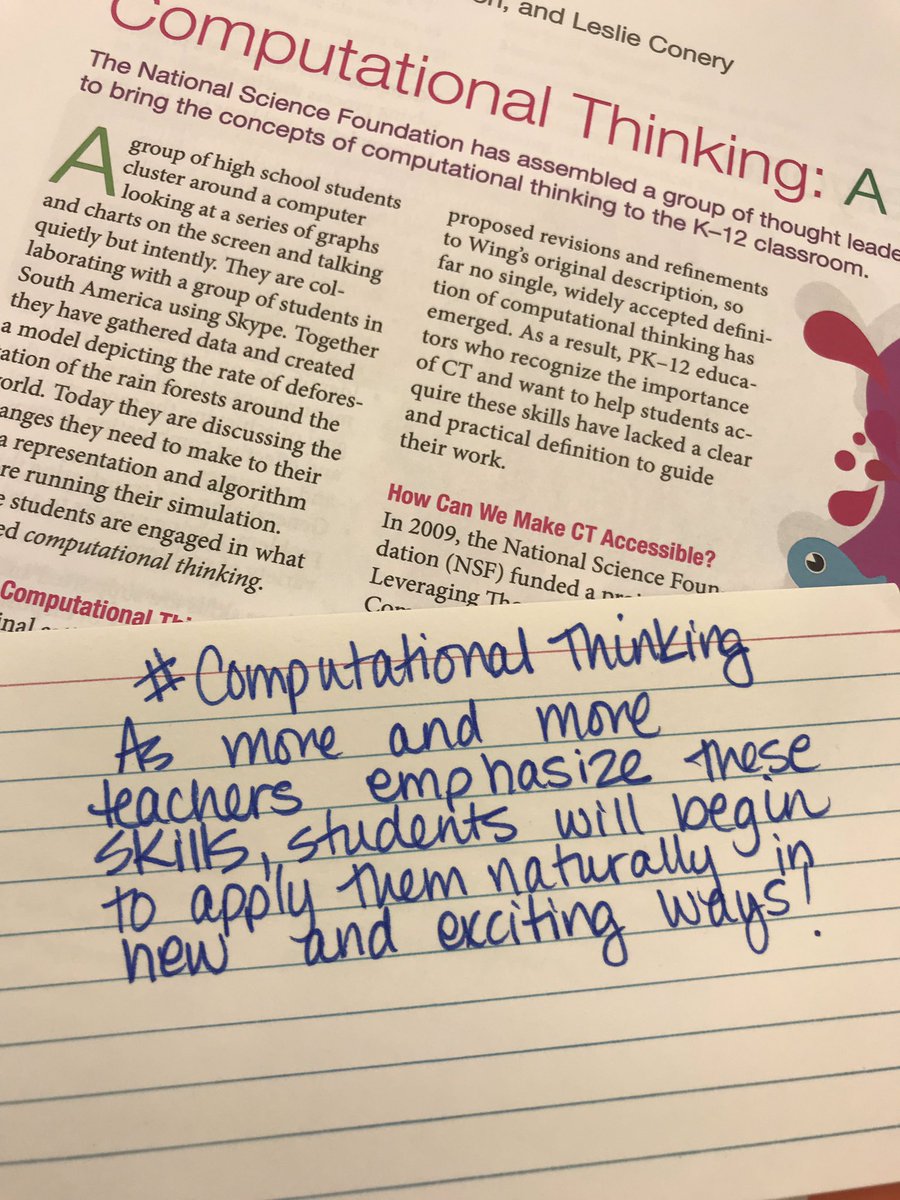 and Leslie Conery
Computational Thinking: A
The National Science Foundation has assembled a group of thought leade
to bring the concepts of computational thinking to the K–12 classroom.
A group of high school students
cluster around a computer
looking at a series of graphs
and charts on the screen and talking
quietly but intently. They are col-
laborating with a group of students in
South America using Skype. Together
they have gathered data and created
a model depicting the rate of defores-
tation of the rain forests around the
world. Today they are discussing the
anges they need to make to their
a representation and algorithm
re running their simulation.
e students are engaged in what
ed computational thinking.
Computational Thi
inal
proposed revisions and refinements
to Wing's original description, so
far no single, widely accepted defini-
tion of computational thinking has
emerged. As a result, PK–12 educa-
tors who recognize the importance
of CT and want to help students ac-
quire these skills have lacked a clear
and practical definition to guide
their work.
How Can We Make CT Accessible?
In 2009, the National Science Foun-
dation (NSF) funded a
Leveraging
#Computational Thinking
As more and more
teachers emphasize these
skills, students will begin
to apply them naturally in
new and exciting ways!